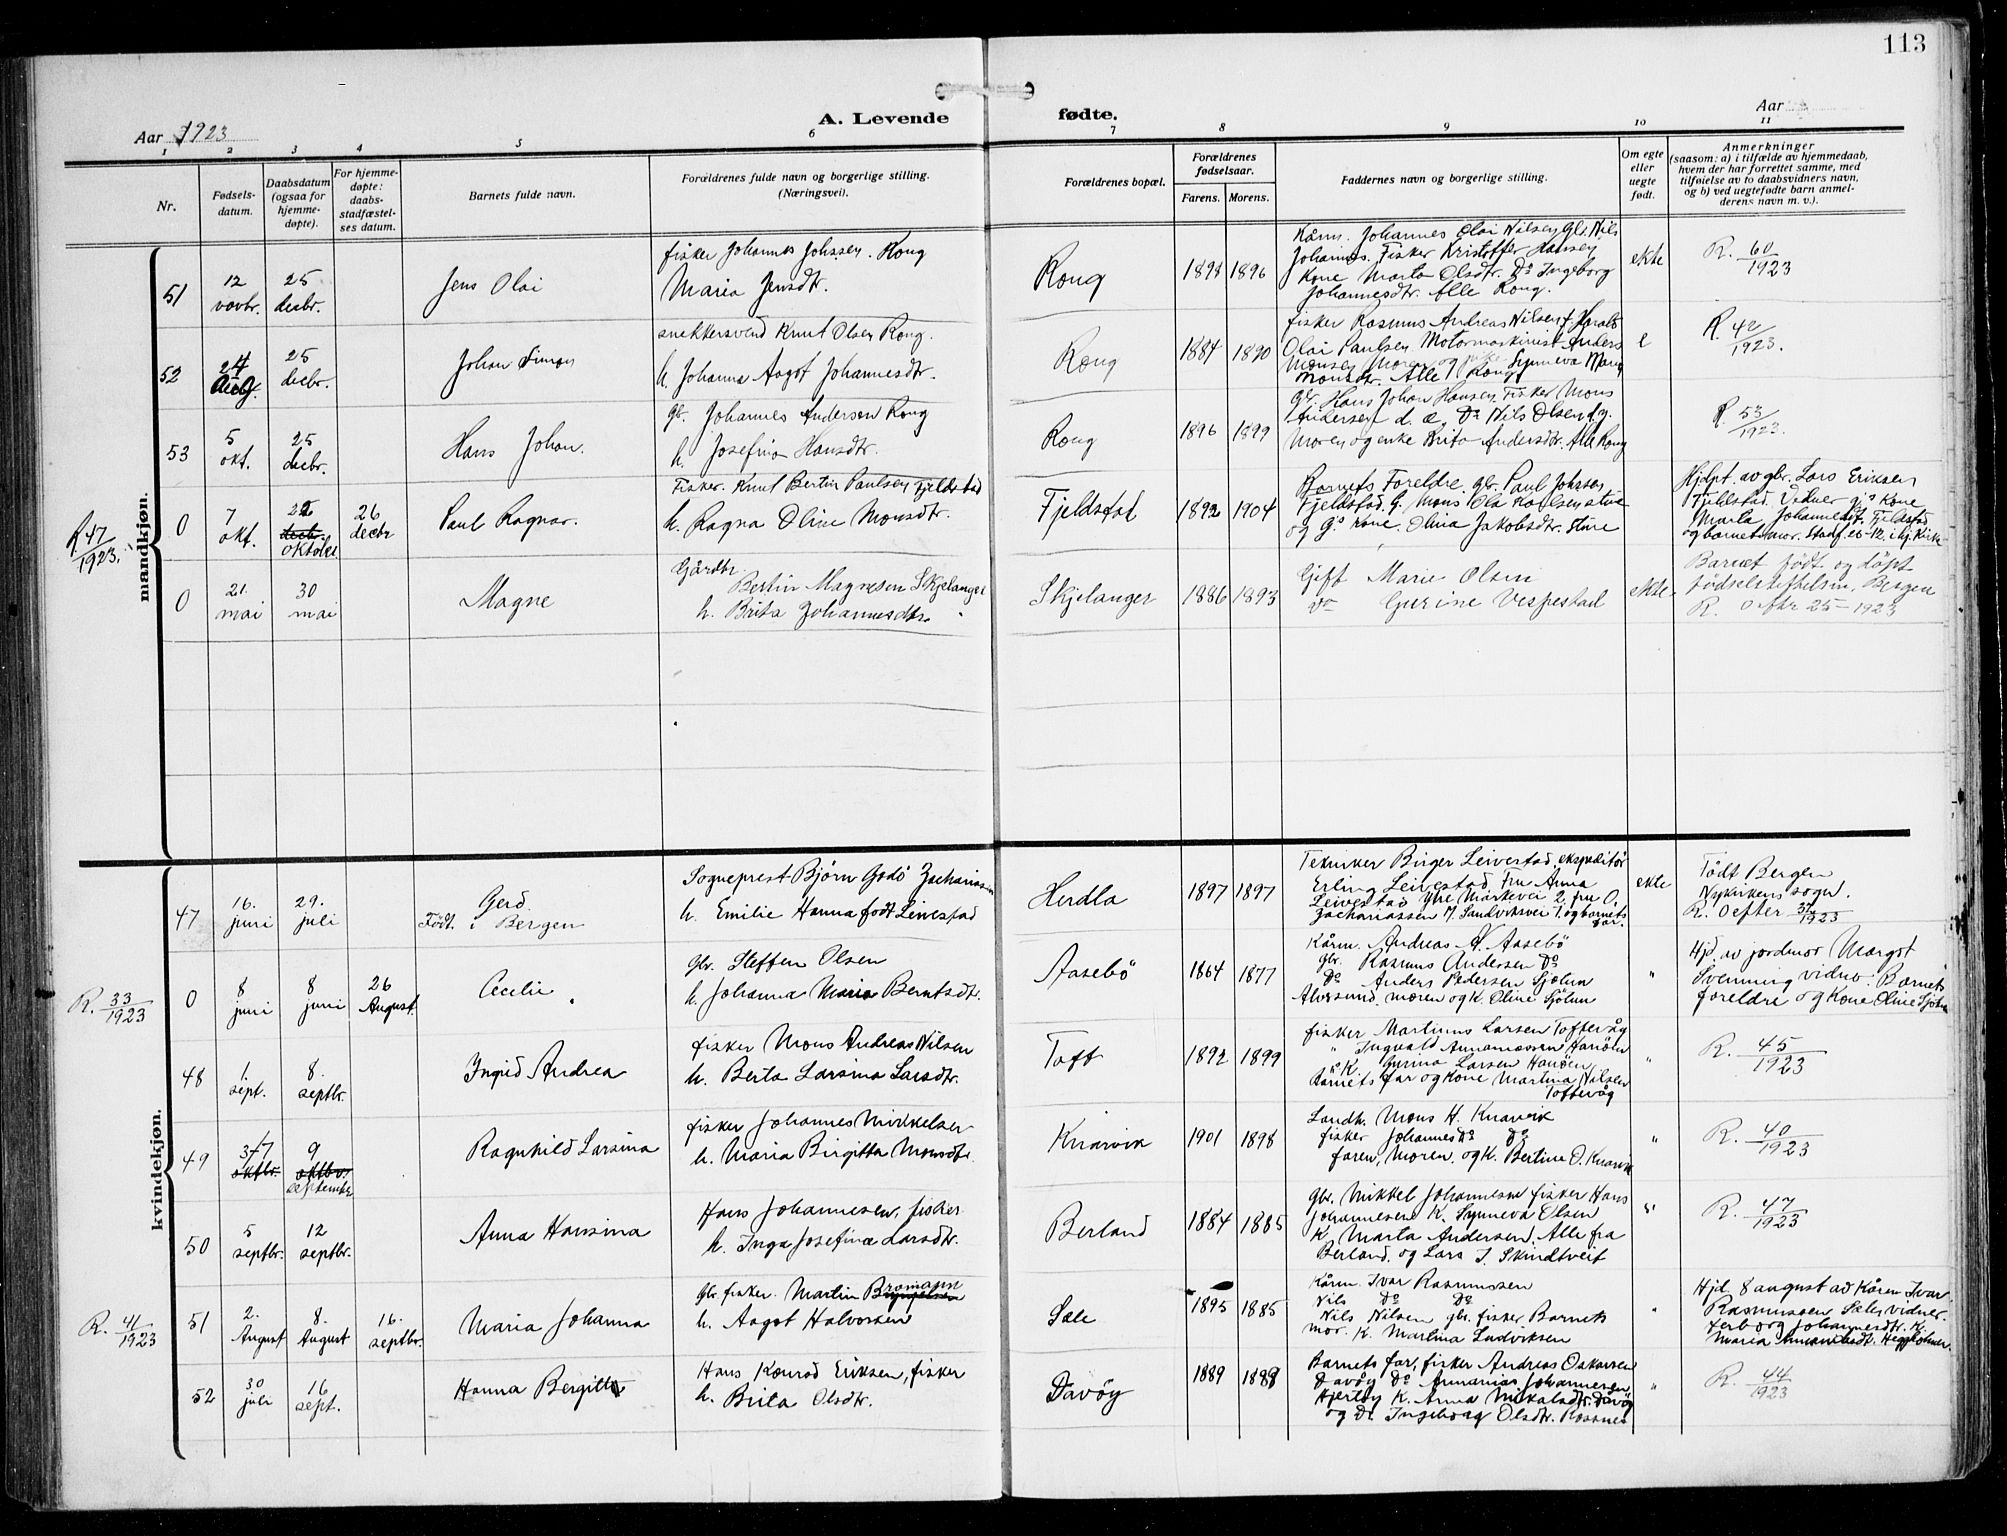 113
Aar 1923
A. Levende fødte.
Aar
1 2 3 4 5 6 7 8 9 10 11
Nr.
Fødsels-
datum.
Daabsdatum
(ogsaa for
hjemme-
døpte).
For hjemme-
døpte:
daabs-
stadfæstel-
ses datum.
Barnets fulde navn.
Forældrenes fulde navn og borgerlige stilling.
(Næringsvei).
Forældrenes bopæl.
Forældrenes
fødselsaar.
Farens. Morens.
Faddernes navn og borgerlige stilling.
Om egte
eller
uegte
født.
Anmerkninger
(saasom: a) i tilfælde av hjemmedaab,
hvem der har forrettet samme, med
tilføielse av to daabsvidners navn,
og b) ved uegtefødte barn anmel-
derens navn m. v.).
mandkjøn.
51
12
novbr.
25
decbr.
Jens Olai
fisker Johannes Johssen. Rong
Maria Jensdtr.
Rong
1898 1896
Kårm. Johannes Olai Nilsen Gbr. Nils
Johannes. Fisker Kristoffer Hansen
Kone Marta Olsdtr. Do Ingeborg
Johannesdtr. Alle Rong.
ekte
R. 60/1923
52
24
25
decbr.
Johan Simon
snekkersvend Knut Olsen Rong.
h. Johanna Aagot Johannesdtr.
Rong
1884 1890
fisker Rasmus Andreas Nilsen f. Harald
Olai Paulsen Motormaskinist Anders
Monsen Moren og Synneva
Monsdtr. Alle Rong
e
R. 42/1923.
53
5
okt.
25
decbr.
Hans Johan.
gb. Johannes Andersen Rong
h. Josefina Hansdtr.
Rong
1896 1899
Gbr. Hans Johan Hansen Fisker Mons
Andersen d. e. Do Nils Olsen d.y.
Moren og enke Brita Andersdtr. Alle Rong
R. 53/1923.
R 47/1923.
0
7
okt.
21
decb.
oktober
26
decbr
Paul Ragnar.
Fisker. Knut Bertin Paulsen Fjeldstad
h. Ragna Oline Monsdtr.
Fjeldstad
1892 1904
Barnets Foreldre gbr. Paul Johssen
Fjeldstad. G. Mons Ola
og G's kone. Olina Jakobsdtr.
Hjdpt. av gbr. Lars Eriksen
Fjeldstad. Vidner g's Kone
Marta Johannesdt. Fjeldstad
og barnets mor. Stadf. 26-12. i hj. Kirke
0
21.
mai
30
mai
Magne
Gårdbr.
Bertin Magnesen Skjelanger
h. Brita Johannesdtr.
Skjelanger
1886 1893
Gift Marie Olsen
Do Gurine Vespestad
ekte.
Barnet født og døpt
fødselsstiftelsen, Bergen
R. 0 efter 25-1923
kvindekjøn.
47
16.
juni
29.
juli
Gerd.
Født. i Bergen
Sogneprest Bjørn Godø Zachariassen
h. Emilie Hanna født Leivestad
Herdla
1897 1897
Tekniker Birger Leivestad, ekspeditør
Erling Leivestad. Fru Anna
Leivestad Yhre Markevei 2, fru O.
Zachariassen N. Sandviksvei 1. og barnets
far.
ekte
Født Bergen
Nykirkens sogn.
R. 0 efter 37/1923
R. 33/1923
0
8
juni
8
juni
26
August
Cecilie
Gbr. Steffen Olsen
h. Johanna Maria Berntsdtr.
Aasebö
1864 1877
Kårm. Andreas A. Aasebö
gbr. Rasmus Andersen Do
Do Anders Pedersen Sjölun
Alversund. moren og k. Oline Sjölun
"
Hjd. av jordmor Margot
Svenning vidner: Barnets
foreldre og Kone Oline Sjölun
48
1.
sept.
8.
septbr.
Ingrid Andrea
fisker Mons Andreas Nilsen
h. Berta Larsina Larsdtr.
Toft
1892 1899
fisker Martinus Larsen Toftevåg
" Ingvald
" K. Gurina Larsen Hanöen
Barnets far og Kone Martina Nilsen
Toftevåg
"
R. 45/1923
49
31/7
oktbr.
9
oktbr.
september
Ragnhild Larsina
fisker Johannes Mikkelsen
h. Maria Birgitta Monsdtr.
Knarvik
1901 1898
Landh. Mons H. Knarvik
fisker Johannes Do Do
faren, Moren, og k. Bertine O. Knarvik
"
R. 40/1923
50
5
septbr.
12
septbr.
Anna Hansina
Hans Johannesen, fisker
h. Inga Josefine Larsdtr.
Berland
1884 1885
Gbr. Mikkel Johannesen fisker Hans
Johannesen K. Synneva Olsen
K. Marta Andersen. Alle fra
Berland. og Lars J. Skindtveit
"
R. 47/1923
R. 41/1923
51
2.
August
8.
August
16.
septbr.
Maria Johanna
Gbr. fisker. Martin Bromann
h. Aagot Halvorsen
Sæle
1895 1885
Kårm. Ivar Rasmussen
Nils Do Do
Nils Nilsen gbr. fisker. Barnets
mor. K. Martina Ludviksen
"
Hjd. 8 august av Kårm. Ivar
Rasmussen Sæle, vidner.
Johannesdtr. K.
Maria
52
30
juli
16
sept.
Hanna Bergitte
Hans Konrad Eriksen, fisker
h. Brita Olsdtr.
Davöy
1889 1888
Barnets far, fisker Andreas Oskarsen
Davöy Do Annanias Johannessen
Hjertöy K. Anna Mikalsdtr. Davöy
og Do. Ingeborg Olsdtr. Rossnes
"
R. 44/1923